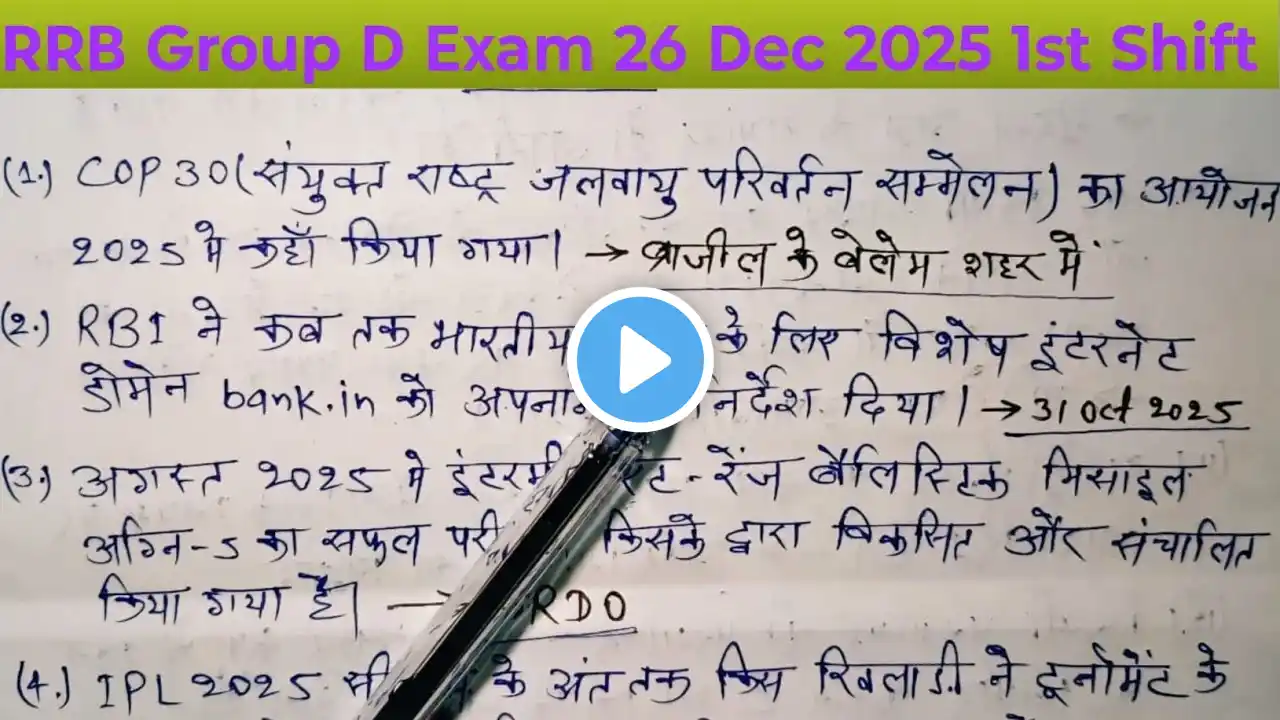 RRB Group D Exam 26 Dec 2025 1st Shift
(1.) COP 30 (संयुक्त राष्ट्र जलवायु परिवर्तन सम्मेलन) का आयोजन
2025 मे कहाँ किया गया। → ब्राजील के बेलेम शहर में
(2.) RBI ने कब तक भारतीय के लिए विशेष इंटरनेट
डोमेन bank.in को निर्देश दिया। → 31 Oct 2025
(3.) अगस्त 2025 मे रेंज बैलिस्टिक मिसाइल
अग्नि-5 का सफल किसके द्वारा विकसित और संचालित
किया गया है। → RDO
(4.) IPL 2025 के अंत तक किस खिलाड़ी ने टूर्नामेंट के